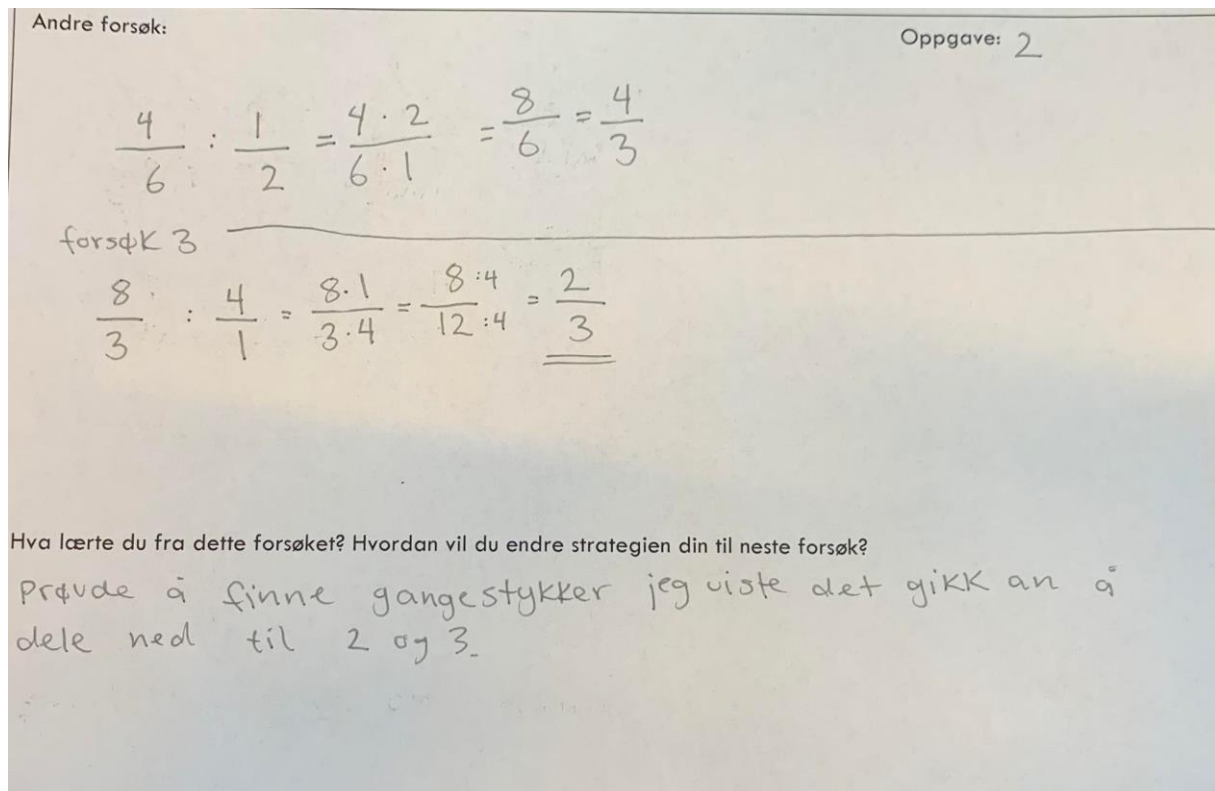 Andre forsøk:
Oppgave: 2
4/6 : 1/2 = 4·2/6·1 = 8/6 = 4/3
forsøk 3
8/3 : 4/1 = 8·1/3·4 = 8:4/12:4 = 2/3
Hva lærte du fra dette forsøket? Hvordan vil du endre strategien din til neste forsøk?
Prøvde å finne gangestykker jeg viste det gikk an å
dele ned til 2 og 3.